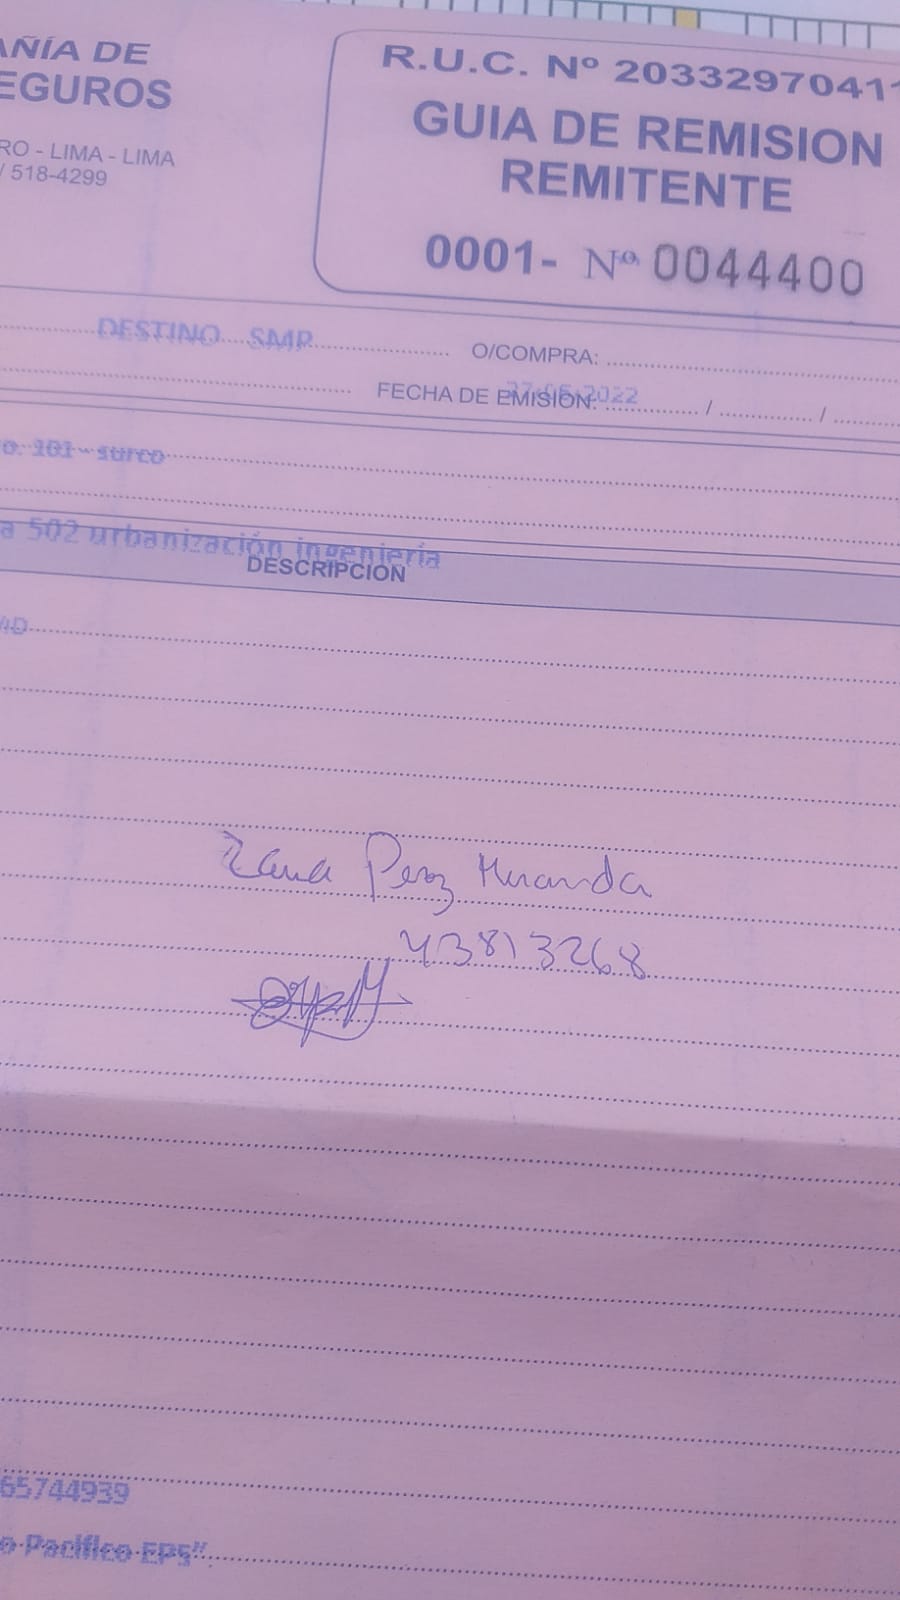 AÑÍA DE
EGUROS
RO - LIMA - LIMA
/ 518-4299
R.U.C. Nº 20332970411
GUIA DE REMISION
REMITENTE
0001- Nº 0044400
DESTINO SMP
O/COMPRA:
FECHA DE EMISIÓN: 27.05.2022 / /
o. 101 - surco
a 502 urbanización ingeniería
DESCRIPCION
Perez Miranda
43813268
65744939
o Pacifico EPS"